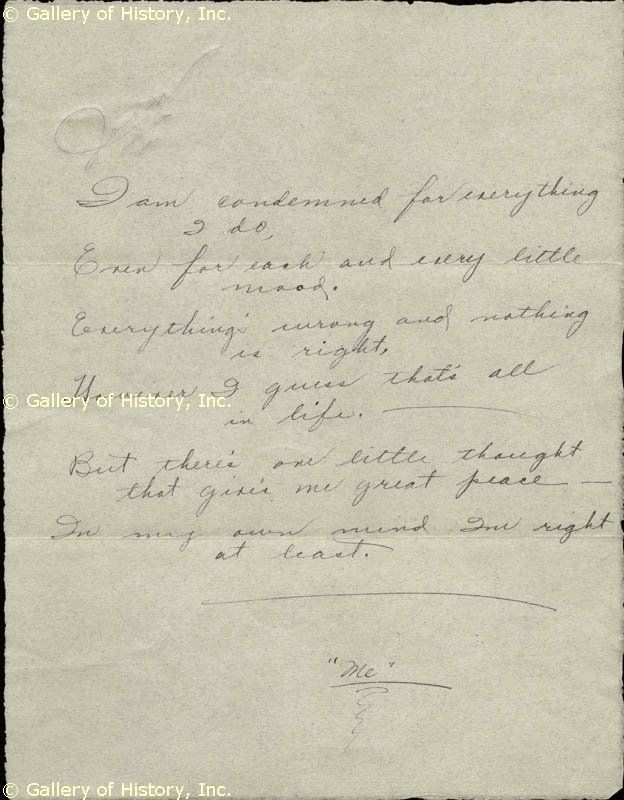 © Gallery of History, Inc.
© Gallery of History, Inc.
I am condemned for everything
I do,
Even for each and every little
mood.
Everything's wrong and nothing
is right,
However I guess that's all
© Gallery of History, Inc.
© Gallery of History, Inc.
in life. —
But there's one little thought
that give's me great peace —
In my own mind I'm right
at least.
"Me"
© Gallery of History, Inc.
© Gallery of History, Inc.